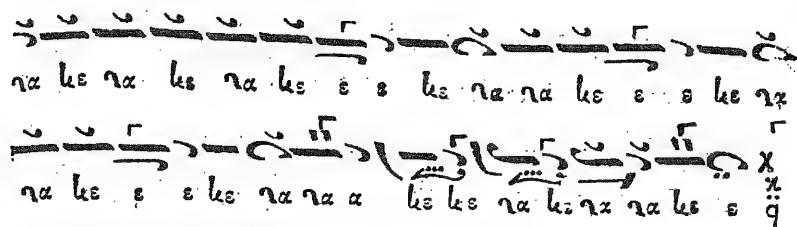 να κε να κε να κε ε ε κε να να κε ε ε κε να
να κε ε ε κε να να α κε κε να κε να να κε ε